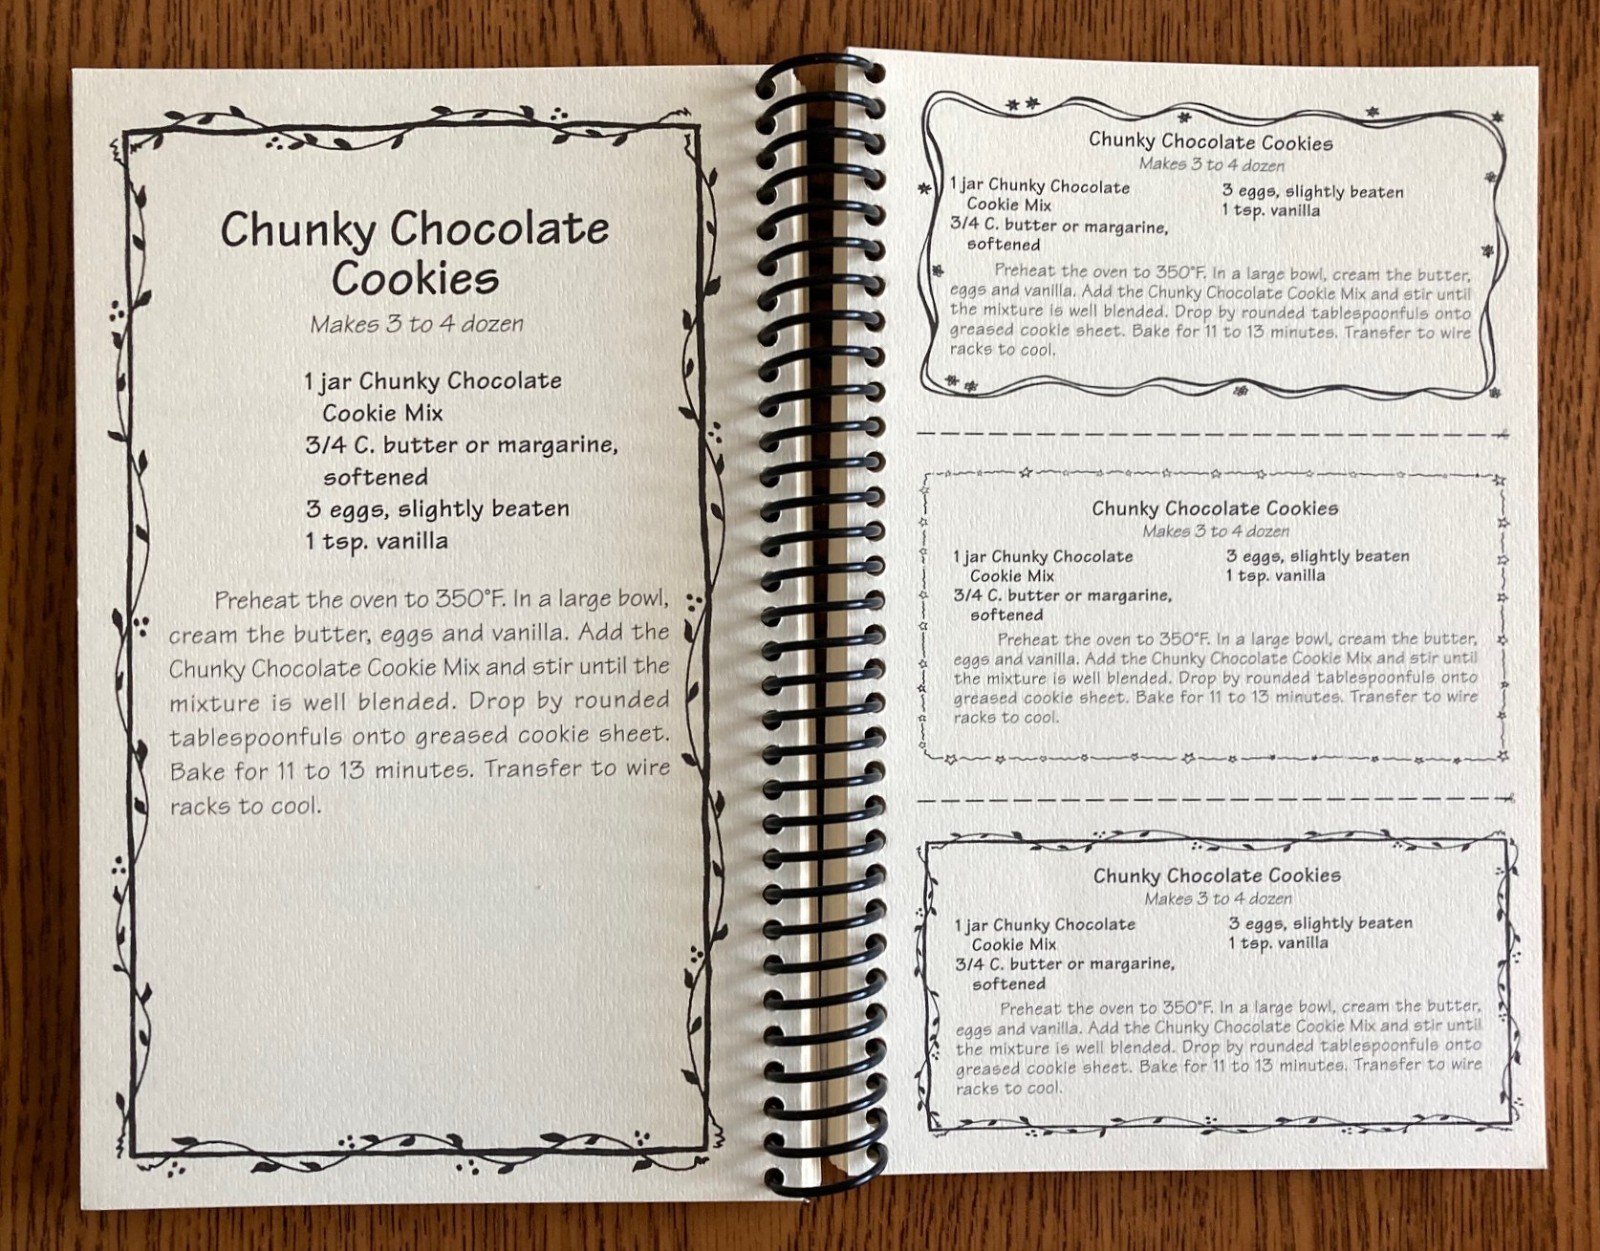 Chunky Chocolate
Cookies
Makes 3 to 4 dozen
1 jar Chunky Chocolate
Cookie Mix
3/4 C. butter or margarine,
softened
3 eggs, slightly beaten
1 tsp. vanilla
Preheat the oven to 350°F. In a large bowl,
cream the butter, eggs and vanilla. Add the
Chunky Chocolate Cookie Mix and stir until the
mixture is well blended. Drop by rounded
tablespoonfuls onto greased cookie sheet.
Bake for 11 to 13 minutes. Transfer to wire
racks to cool.
Chunky Chocolate Cookies
Makes 3 to 4 dozen
1 jar Chunky Chocolate
Cookie Mix
3/4 C. butter or margarine,
softened
3 eggs, slightly beaten
1 tsp. vanilla
Preheat the oven to 350°F. In a large bowl, cream the butter,
eggs and vanilla. Add the Chunky Chocolate Cookie Mix and stir until
the mixture is well blended. Drop by rounded tablespoonfuls onto
greased cookie sheet. Bake for 11 to 13 minutes. Transfer to wire
racks to cool.
Chunky Chocolate Cookies
Makes 3 to 4 dozen
1 jar Chunky Chocolate
Cookie Mix
3/4 C. butter or margarine,
softened
3 eggs, slightly beaten
1 tsp. vanilla
Preheat the oven to 350°F. In a large bowl, cream the butter,
eggs and vanilla. Add the Chunky Chocolate Cookie Mix and stir until
the mixture is well blended. Drop by rounded tablespoonfuls onto
greased cookie sheet. Bake for 11 to 13 minutes. Transfer to wire
racks to cool.
Chunky Chocolate Cookies
Makes 3 to 4 dozen
1 jar Chunky Chocolate
Cookie Mix
3/4 C. butter or margarine,
softened
3 eggs, slightly beaten
1 tsp. vanilla
Preheat the oven to 350°F. In a large bowl, cream the butter,
eggs and vanilla. Add the Chunky Chocolate Cookie Mix and stir until
the mixture is well blended. Drop by rounded tablespoonfuls onto
greased cookie sheet. Bake for 11 to 13 minutes. Transfer to wire
racks to cool.